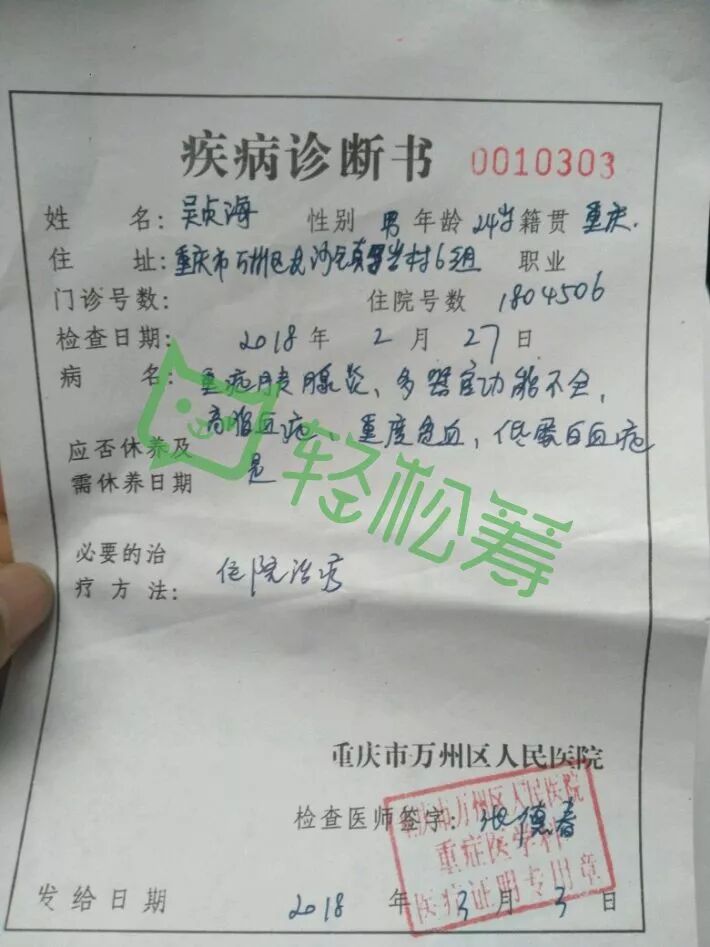 疾病诊断书 0010303
姓 名: 吴贞海 性别 男 年龄 24岁 籍贯 重庆.
住 址: 重庆市万州区长沙镇 岩村6组 职业
门诊号数: 住院号数 1804506
检查日期: 2018 年 2 月 27 日
病 名: 重症胰腺炎、多器官功能不全,
高脂血症、重度贫血, 低蛋白血症
应否休养及
需休养日期 是
轻松筹
必要的治
疗 方 法: 住院治疗
重庆市万州区人民医院
检查医师签字: 张德春
重庆市万州区人民医院
重症医学科
医疗证明专用章
发给日期 2018 年 3 月 3 日